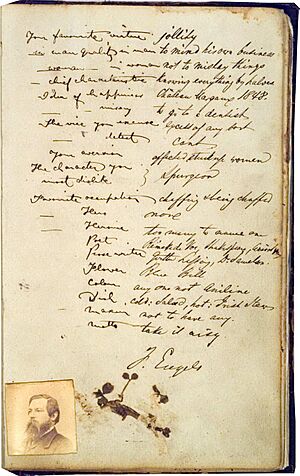 Your favourite virtue jollity
— quality in man to mind his own business
— woman not to mislay things
— Chief characteristic knowing everything by halves
Idea of happiness Château Margaux 1848.
— misery to go to a dentist
The vice you excuse excess of any sort
— detest Cant
Your aversion affected stuck up women
The character you most dislike Spurgeon
Favourite occupation chaffing & being chaffed
— Hero none
— Heroine too many to name one
Poet
Prose writer
Flower Blue Bell
Colour any one not Aniline
Dish cold: Salad, hot: Irish Stew
Maxim not to have any
Motto take it aisy
F. Engels